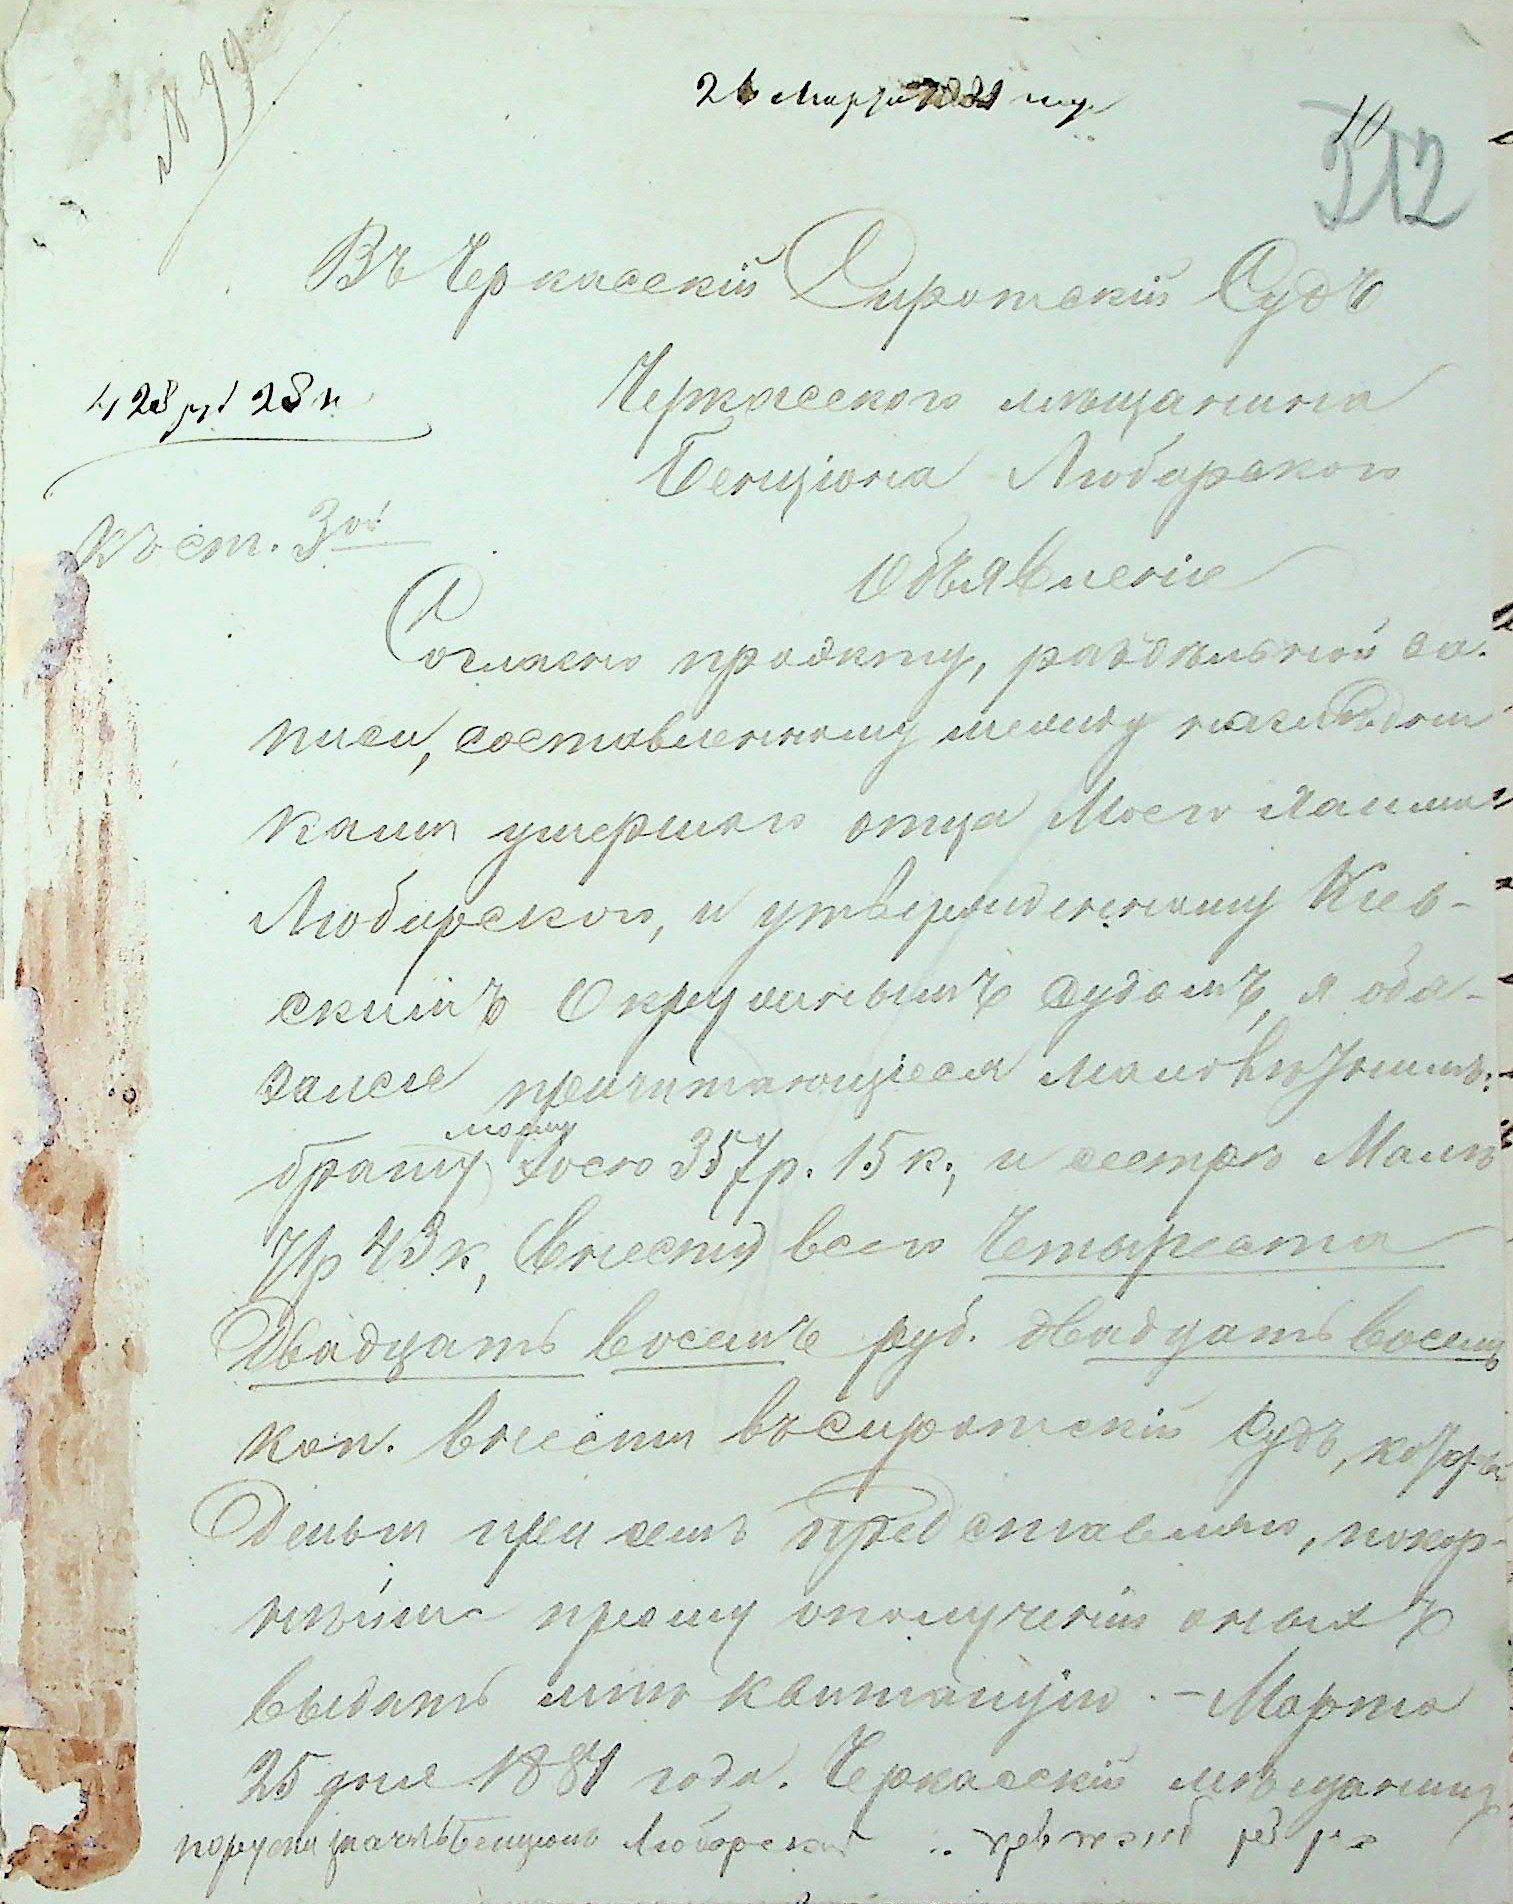 № 99
26 Марта 1881 году
10
212
Въ Черкасскій Сиротскій Судъ
428 руб 28 к
Черкасского мещанина
Бенціона Любарского
къ ст. 3ой
Объявленіе
Согласно проэкту, раздельной за-
писи, составленному между наследни
ками умершего отца Моего
Любарского, и утвержденному Кіев-
скимъ Окружнымъ Судомъ, я обя-
зался причитающіеся малолетнимъ:
брату моему 357 р. 15 к., и сестре Малке
71 р 43 к, (внести) всего Четыреста
Двадцать восемь руб. двадцать восемь
коп. внести въ Сиротскій Судъ, которые
Деньги при семъ представляю, покор-
нейше прошу о полученіи оныхъ
выдать мне квитанцію. – Марта
25 дня 1881 года. Черкасскій мещанинъ
Бенціонъ Любарскій